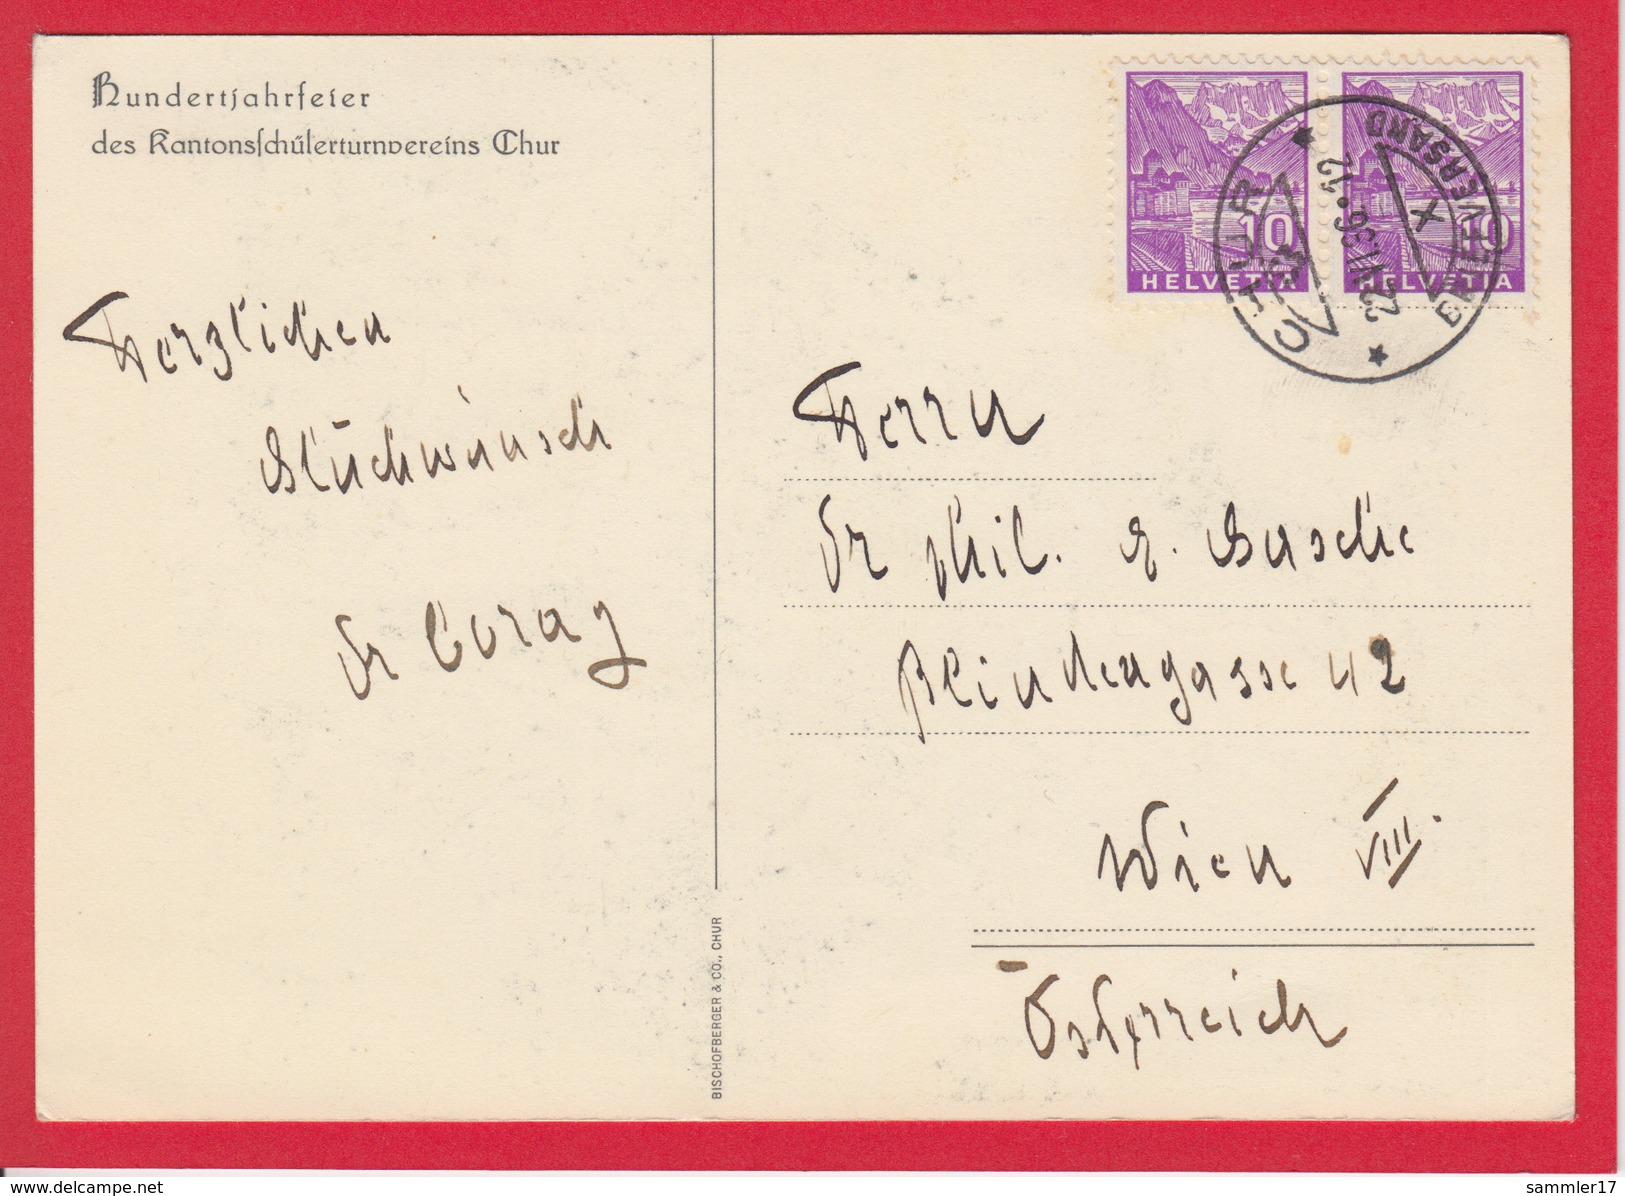 Hundertjahrfeier
des Kantonsschülerturnvereins Chur
10
HELVETIA
10
HELVETIA
CHUR
BRIEFVERSAND
X
22.VI.36.12
Herzlichen
Glückwunsch
Dr Coray
Herrn
Dr phil. E. Basche
Blindengasse 42
Wien VIII.
Österreich
BISCHOFBERGER & CO., CHUR
http://www.delcampe.net
sammler17